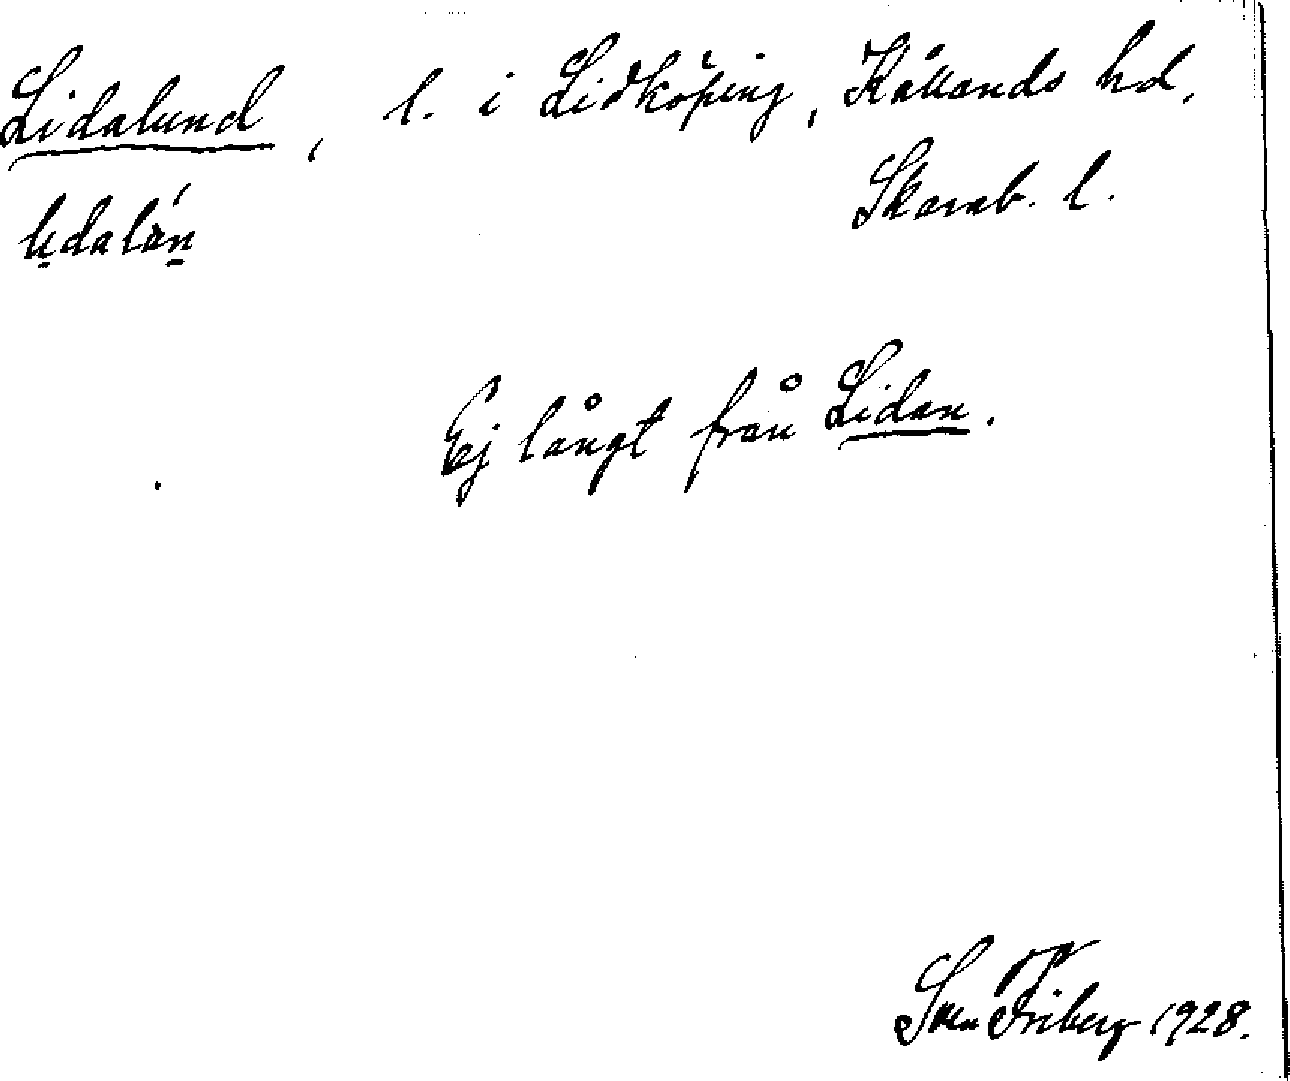 Lidalund, l. i Lidköping, Kållands hd,
Skarab. l.
lidalán
Ej långt från Lidan.
Sven Friberg 1928.